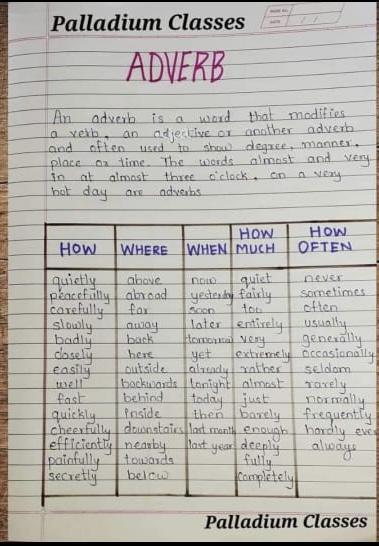 Palladium Classes
PAGE NO.
DATE / /
ADVERB
An adverb is a word that modifies
a verb, an adjective or another adverb
and often used to show degree, manner,
place or time. The words almost and very
in at almost three o'clock, on a very
hot day are adverbs
HOW WHERE WHEN HOW MUCH HOW OFTEN
quietly above now quiet never
peacefully abroad yesterday fairly sometimes
carefully far soon too often
slowly away later entirely usually
badly back tomorrow very generally
closely here yet extremely occasionally
easily outside already rather seldom
well backwards tonight almost rarely
fast behind today just normally
quickly inside then barely frequently
cheerfully downstairs last month enough hardly ever
efficiently nearby last year deeply always
painfully towards fully
secretly below completely
Palladium Classes